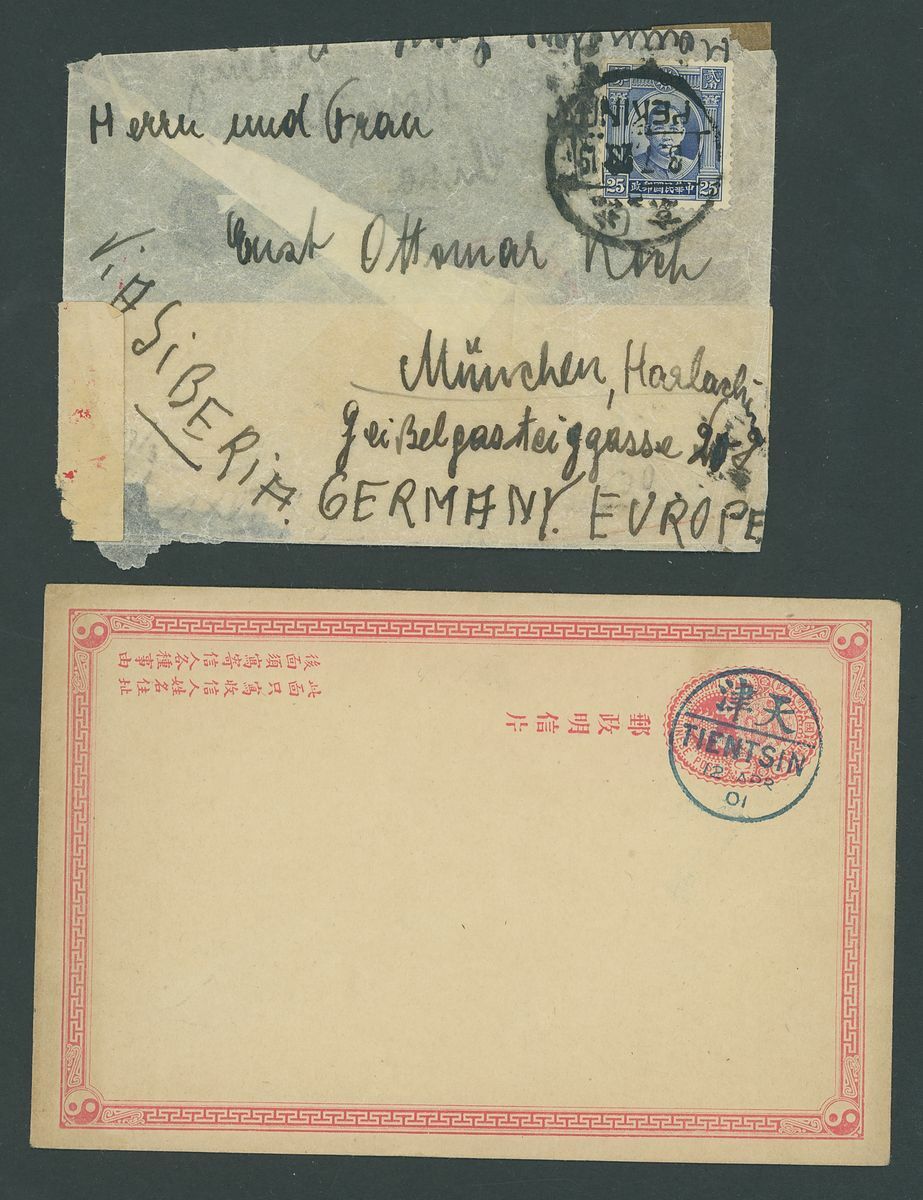 Herrn und Frau
Ernst Ottomar Koch
ViA SiBERiA.
München, Harlaching
Geißelgasteiggasse
GERMANY. EUROPE
PEKING
25 政郵國民華中 25
此面只寫收信人姓名住址
後面須寫寄信人各種事由
郵政明信片
津天
TIENTSIN
12 APR
01